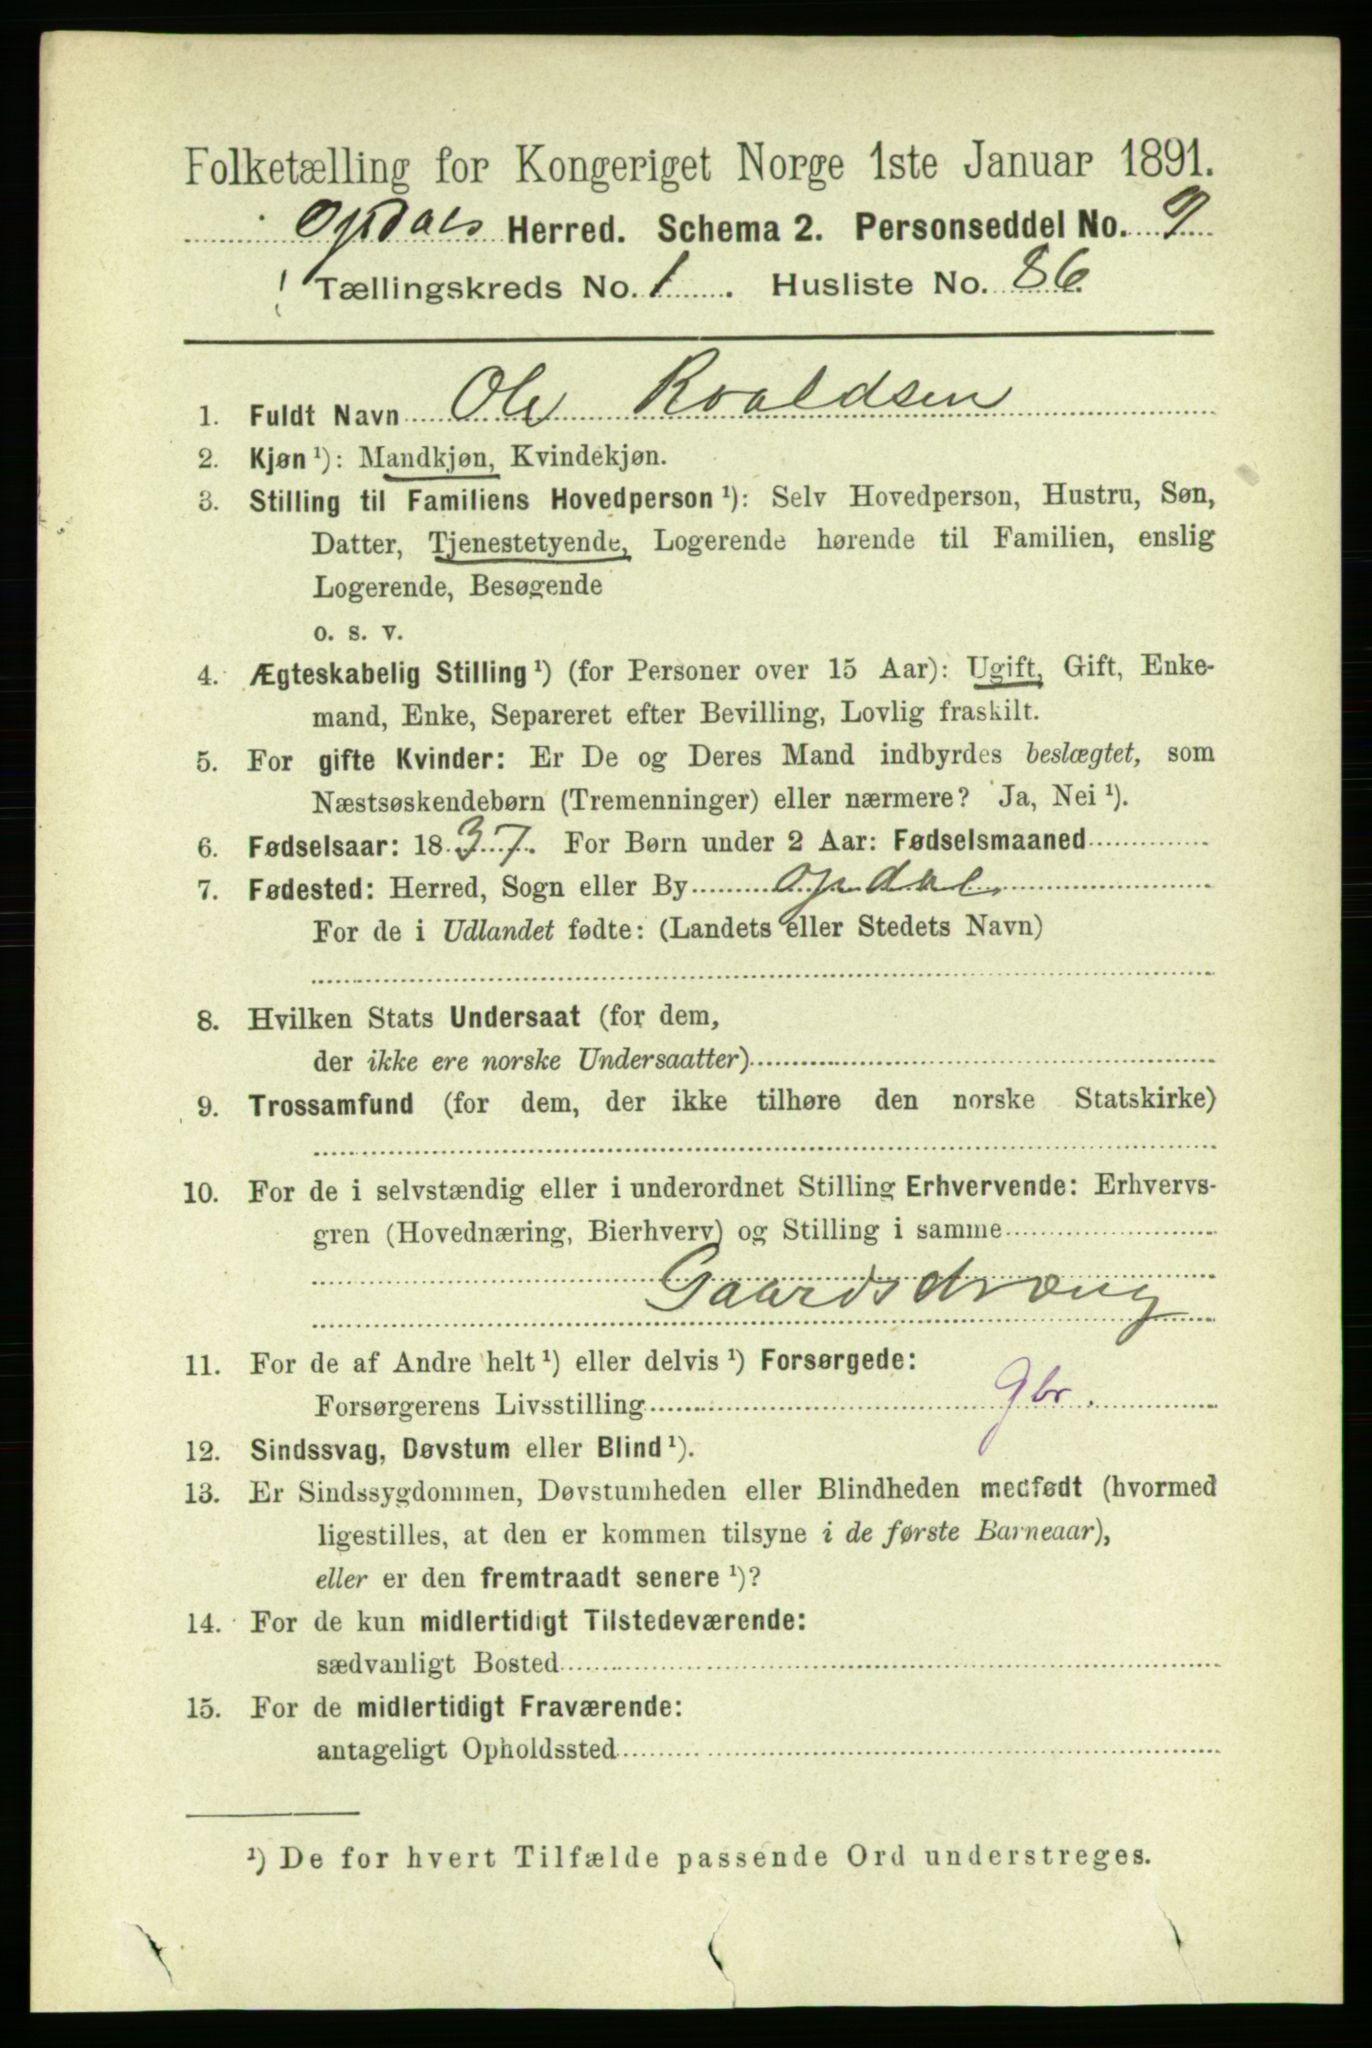 Folketælling for Kongeriget Norge 1ste Januar 1891.
Opdals Herred. Schema 2. Personseddel No. 9
Tællingskreds No. 1. Husliste No. 86
1. Fuldt Navn Ole Roaldsen
2. Kjøn ¹): Mandkjøn, Kvindekjøn.
3. Stilling til Familiens Hovedperson ¹): Selv Hovedperson, Hustru, Søn,
Datter, Tjenestetyende, Logerende hørende til Familien, enslig
Logerende, Besøgende
o. s. v.
4. Ægteskabelig Stilling ¹) (for Personer over 15 Aar): Ugift, Gift, Enke-
mand, Enke, Separeret efter Bevilling, Lovlig fraskilt.
5. For gifte Kvinder: Er De og Deres Mand indbyrdes beslægtet, som
Næstsøskendebørn (Tremenninger) eller nærmere? Ja, Nei ¹).
6. Fødselsaar: 1837. For Børn under 2 Aar: Fødselsmaaned
7. Fødested: Herred, Sogn eller By Opdal
For de i Udlandet fødte: (Landets eller Stedets Navn)
8. Hvilken Stats Undersaat (for dem,
der ikke ere norske Undersaatter)
9. Trossamfund (for dem, der ikke tilhøre den norske Statskirke)
10. For de i selvstændig eller i underordnet Stilling Erhvervende: Erhvervs-
gren (Hovednæring, Bierhverv) og Stilling i samme
Gaardsdræng
11. For de af Andre helt ¹) eller delvis ¹) Forsørgede:
Forsørgerens Livsstilling Gbr.
12. Sindssvag, Døvstum eller Blind ¹).
13. Er Sindssygdommen, Døvstumheden eller Blindheden medfødt (hvormed
ligestilles, at den er kommen tilsyne i de første Barneaar),
eller er den fremtraadt senere ¹)?
14. For de kun midlertidigt Tilstedeværende:
sædvanligt Bosted
15. For de midlertidigt Fraværende:
antageligt Opholdssted
¹) De for hvert Tilfælde passende Ord understreges.